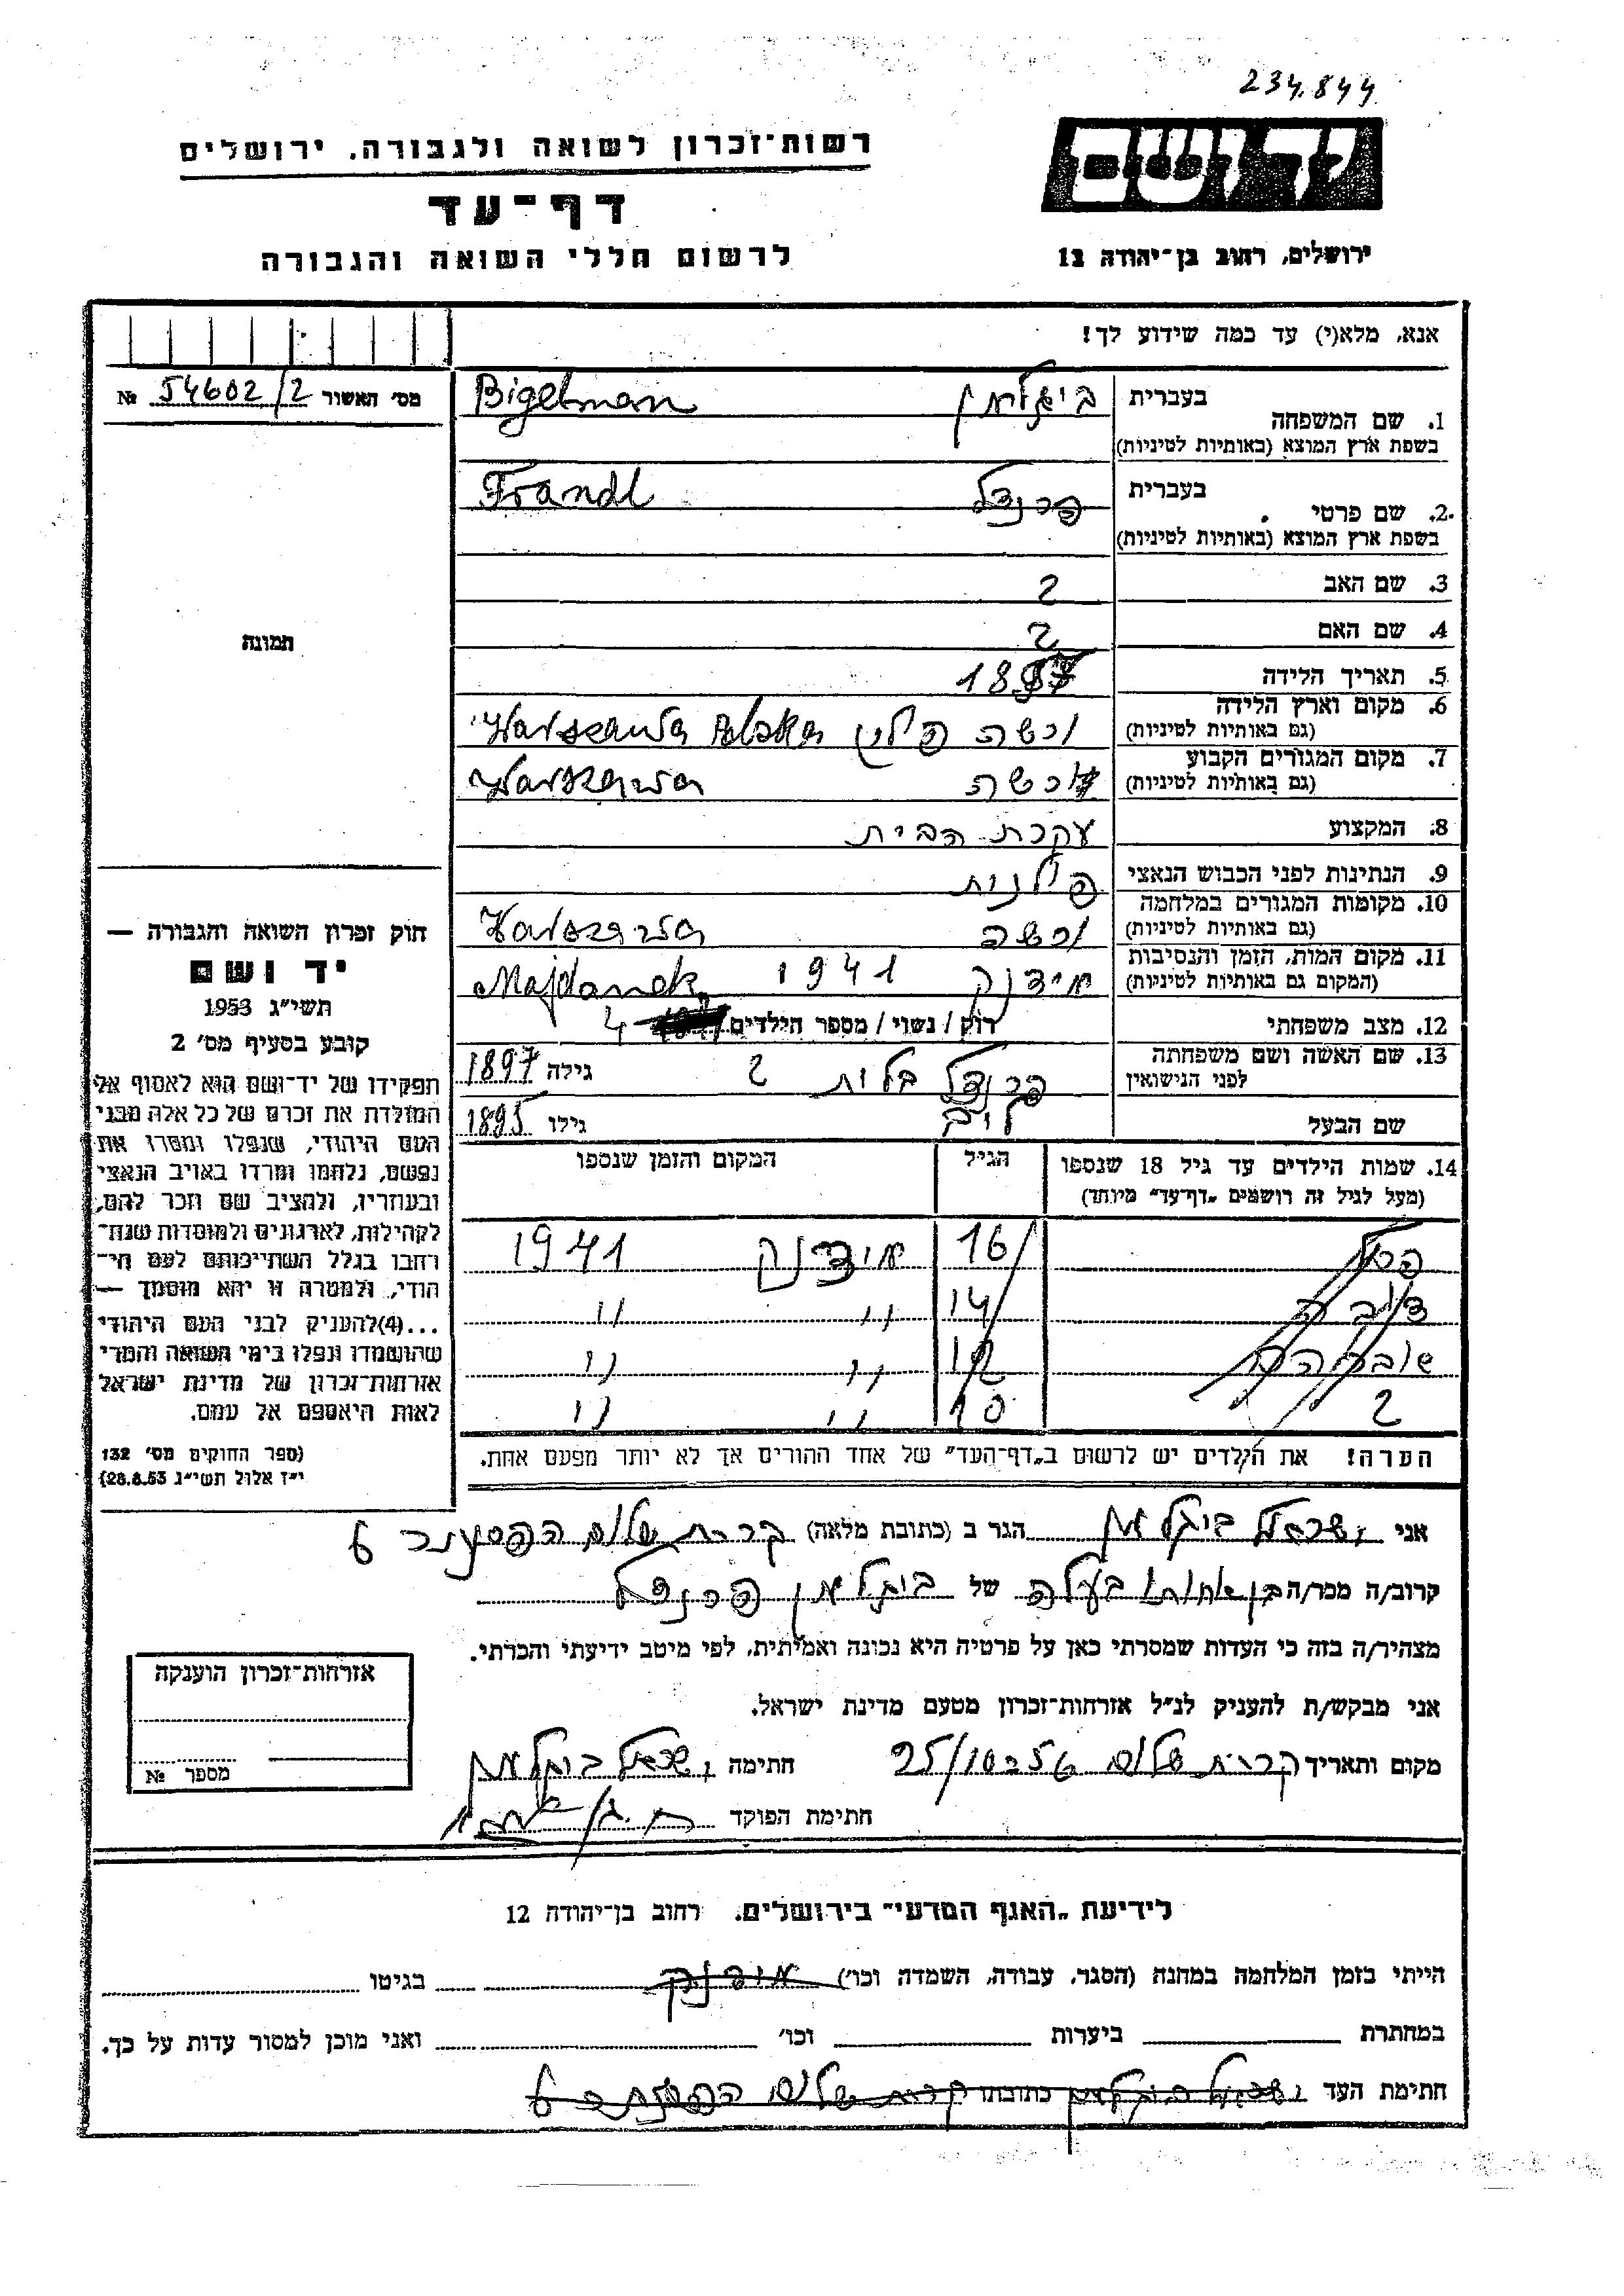 234.844
יד ושם
רשות־זכרון לשואה ולגבורה, ירושלים
דף־עד
לרשום חללי השואה והגבורה
ירושלים, רחוב בן־יהודה 12
אנא, מלא(י) עד כמה שידוע לך!
מס' האשור 54602/2 №
תמונה
1. שם המשפחה בעברית ביגלמן Bigelman
בשפת ארץ המוצא (באותיות לטיניות)
2. שם פרטי בעברית פרנדל Frandl
בשפת ארץ המוצא (באותיות לטיניות)
3. שם האב ?
4. שם האם ?
5. תאריך הלידה 1897
6. מקום וארץ הלידה ורשה פולין Warszawa Polska
(גם באותיות לטיניות)
7. מקום המגורים הקבוע ורשה Warszawa
(גם באותיות לטיניות)
8. המקצוע עקרת הבית
9. הנתינות לפני הכבוש הנאצי פולנית
10. מקומות המגורים במלחמה ורשה Warszawa
(גם באותיות לטיניות)
11. מקום המות, הזמן והנסיבות מידנק 1941 Majdanek
(המקום גם באותיות לטיניות)
12. מצב משפחתי רוק / נשוי / מספר הילדים 4
13. שם האשה ושם משפחתה פרנדל בלות ? גילה 1897
לפני הנישואין
שם הבעל ליב גילו 1895
14. שמות הילדים עד גיל 18 שנספו הגיל המקום והזמן שנספו
(מעל לגיל זה רושמים „דף־עד" מיוחד)
16 מידנק 1941
14 " "
12 " "
? 10 " "
הערה! את הילדים יש לרשום ב„דף־העד" של אחד ההורים אך לא יותר מפעם אחת.
חוק זכרון השואה והגבורה —
יד ושם
תשי"ג 1953
קובע בסעיף מס' 2
תפקידו של יד־ושם הוא לאסוף אל
המולדת את זכרם של כל אלה מבני
העם היהודי, שנפלו ומסרו את
נפשם, נלחמו ומרדו באויב הנאצי
ובעוזריו, ולהציב שם וזכר להם,
לקהילות, לארגונים ולמוסדות שנח־
רחבו בגלל השתייכותם לעם הי־
הודי, ולמטרה זו יהא מוסמך —
...(4) להעניק לבני העם היהודי
שהושמדו ונפלו בימי השואה והמרי
אזרחות־זכרון של מדינת ישראל
לאות היאספם אל עמם.
(ספר החוקים מס' 132
י"ז אלול תשי"ג 28.8.53)
אני ישראל ביגלמן הגר ב (כתובת מלאה) קרית שלום 6
קרוב/ה מכר/ה בן אחות בעלה של ביגלמן פרנדל
מצהיר/ה בזה כי העדות שמסרתי כאן על פרטיה היא נכונה ואמיתית, לפי מיטב ידיעתי והכרתי.
אני מבקש/ת להעניק לנ"ל אזרחות־זכרון מטעם מדינת ישראל.
מקום ותאריך קרית שלום 25/10 56 חתימה ישראל ביגלמן
חתימת הפוקד
אזרחות־זכרון הוענקה
מספר №
לידיעת „האגף המדעי" בירושלים, רחוב בן־יהודה 12
הייתי בזמן המלחמה במחנה (הסגר, עבודה, השמדה וכו') מידנק בגיטו
במחתרת ביערות וכו' ואני מוכן למסור עדות על כך.
חתימת העד ישראל ביגלמן כתובתו קרית שלום 6